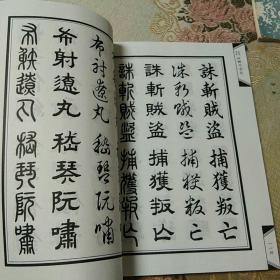 誅斬賊盜捕獲叛亡
誅斬賊盜捕獲叛亡
誅斬賊盜捕獲叛亡
誅斬賊盜捕獲叛亡
布射遼丸嵇琴阮嘯
布射遼丸嵇琴阮嘯
布射遼丸嵇琴阮嘯